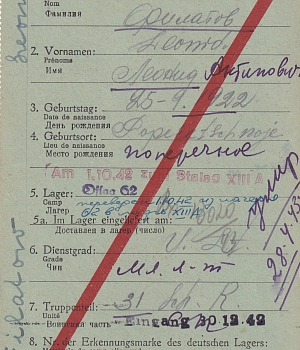 Nom
Фамилия
Филатов
Leonid
2. Vornamen:
Prénoms
Имя
Леонид Антипович
3. Geburtstag:
Date de naissance
День рождения
25-9.1922
4. Geburtsort:
Lieu de naissance
Место рождения
поперечное
Am 1.10.42 zum Stalag XIII A
5. Lager:
Camp
Лагерь
Oflag 62
5a. Im Lager eingeliefert am:
Доставлен в лагерь (число)
6. Dienstgrad:
Grade
Чин
Мл. л-т
7. Truppenteil:
Unité
Воинская часть
31
Eingang 30.12.42
8. Nr. der Erkennungsmarke des deutschen Lagers:
умер
28.4.43
Filatow